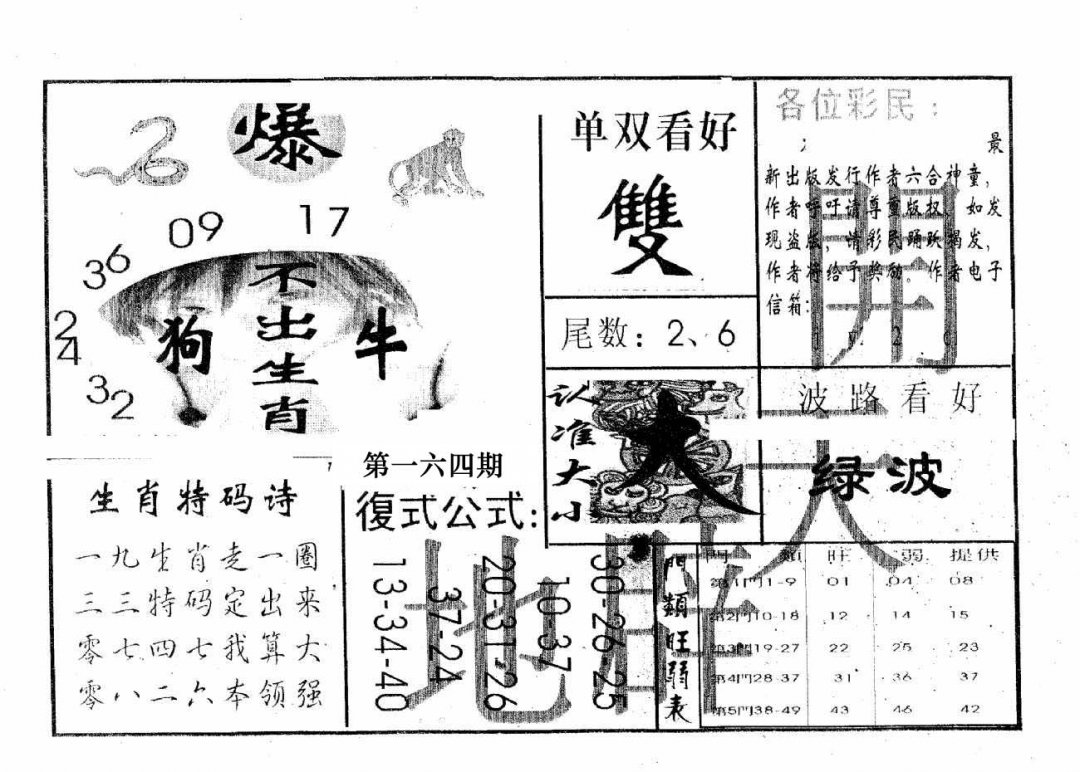 爆
09
17
36
24
32
不出生肖
狗
牛
单双看好
雙
尾数：2、6
认准大小
大
各位彩民：
最
新出版发行作者六合神童，
作者呼吁请尊重版权，如发
现盗版，请彩民踊跃揭发，
作者将给予奖励。作者电子
信箱：
波路看好
绿波
生肖特码诗
一九生肖走一圈
三三特码定出来
零七四七我算大
零八二六本领强
第一六四期
復式公式：
30-26-25
10-37
20-31-26
37-24
13-34-40
門類旺弱表
門類 旺 弱 提供
第1門1-9 01 04 08
第2門10-18 12 14 15
第3門19-27 22 25 23
第4門28-37 31 36 37
第5門38-49 43 46 42